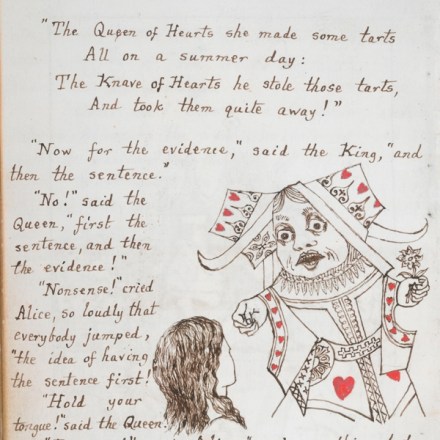 "The Queen of Hearts she made some tarts
All on a summer day:
The Knave of Hearts he stole those tarts,
And took them quite away!"
"Now for the evidence," said the King, "and
then the sentence."
"No!" said the
Queen, "first the
sentence, and then
the evidence!"
"Nonsense!" cried
Alice, so loudly that
everybody jumped,
"the idea of having
the sentence first!
"Hold your
tongue!" said the Queen.